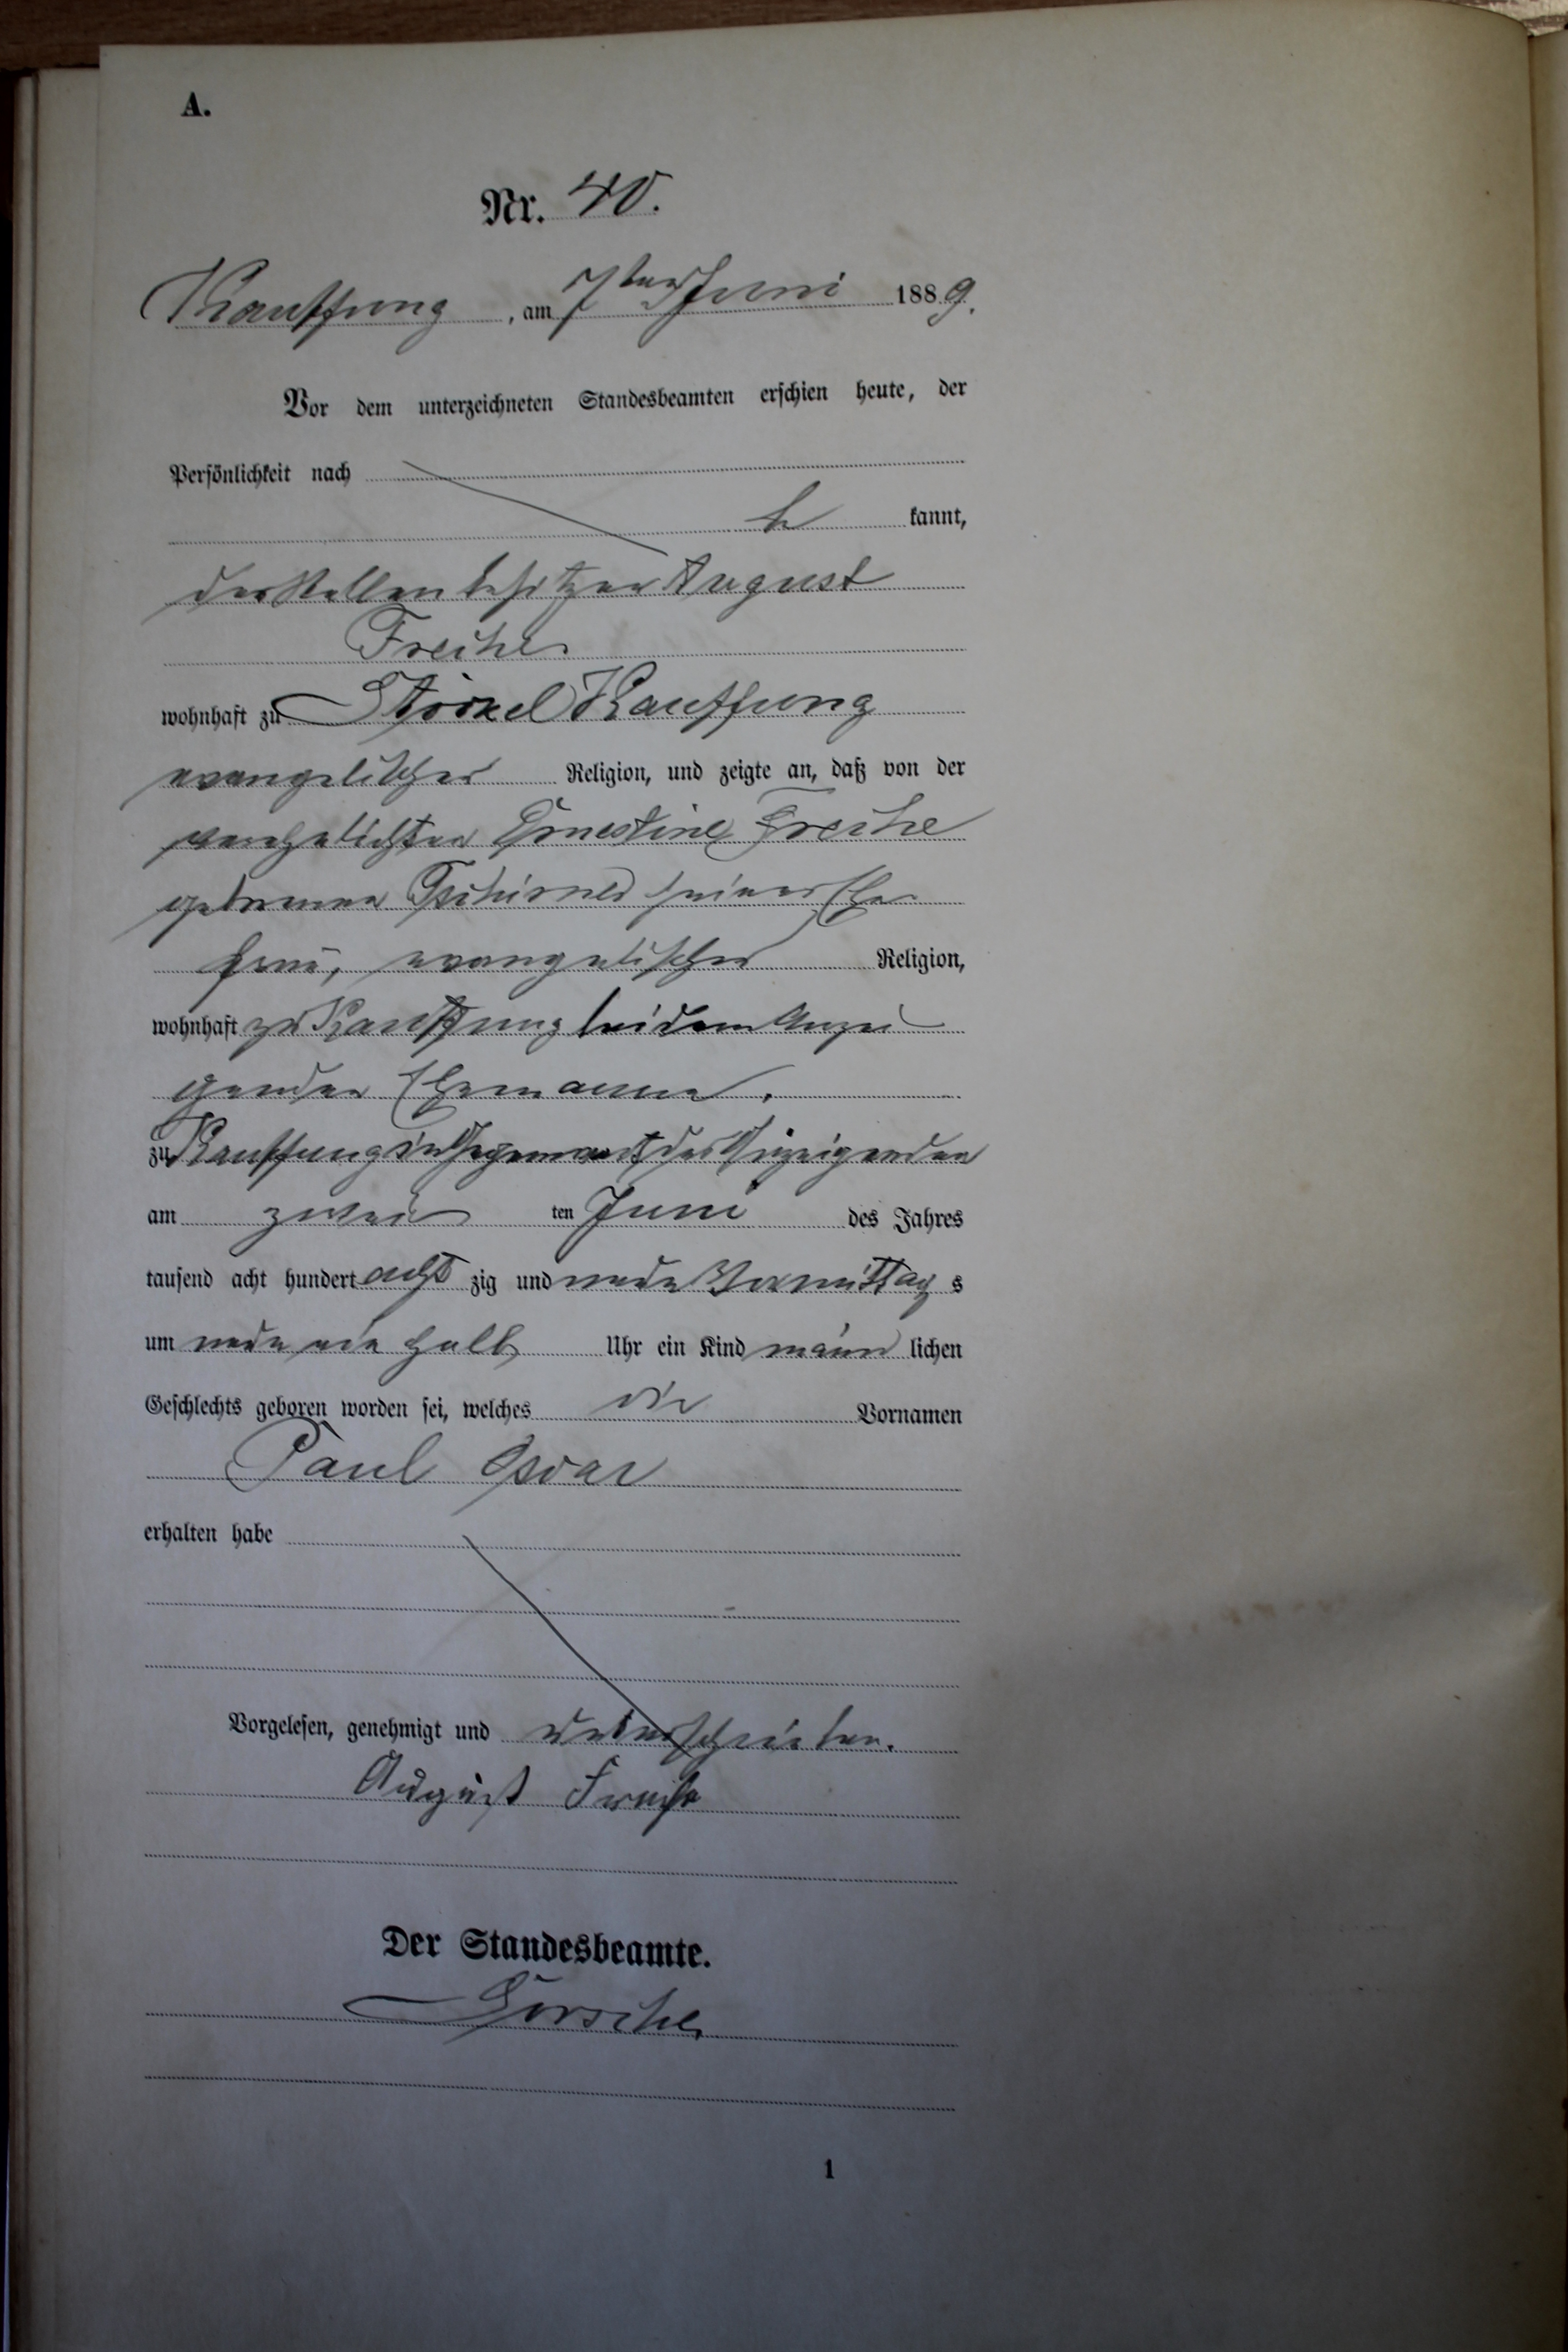 A.
Nr. 40.
Kauffung, am 7ten Juni 1889.
Vor dem unterzeichneten Standesbeamten erschien heute, der
Persönlichkeit nach
be kannt,
der Stellenbesitzer August
Freche
wohnhaft zu Stöckel Kauffung
evangelischer Religion, und zeigte an, daß von der
verehelichten Ernestine Freche
geborenen Tschirner seiner Ehe
frau, evangelischer Religion,
wohnhaft zu Kauffung bei dem Anzei
genden Ehemanne,
zu Kauffung in Gegenwart des Anzeigenden
am zwei ten Juni des Jahres
tausend acht hundert acht zig und neun Vormittag s
um neun ein halb Uhr ein Kind männ lichen
Geschlechts geboren worden sei, welches die Vornamen
Paul Oscar
erhalten habe
Vorgelesen, genehmigt und unterschrieben.
August Freche
Der Standesbeamte.
1